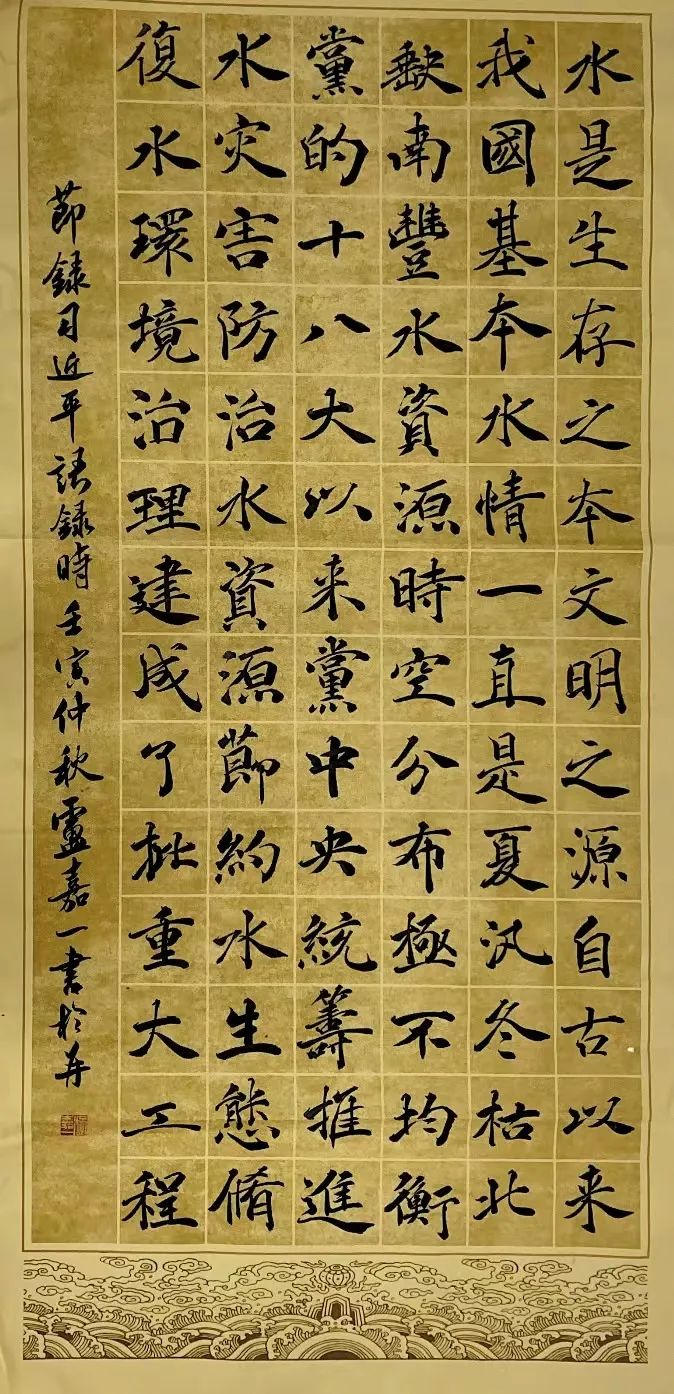 水是生存之本文明之源自古以来
我國基本水情一直是夏汛冬枯北
缺南豐水資源時空分布極不均衡
黨的十八大以来黨中央統籌推進
水灾害防治水資源節約水生態脩
復水環境治理建成了批重大工程
節録习近平語録時壬寅仲秋盧嘉一書於并